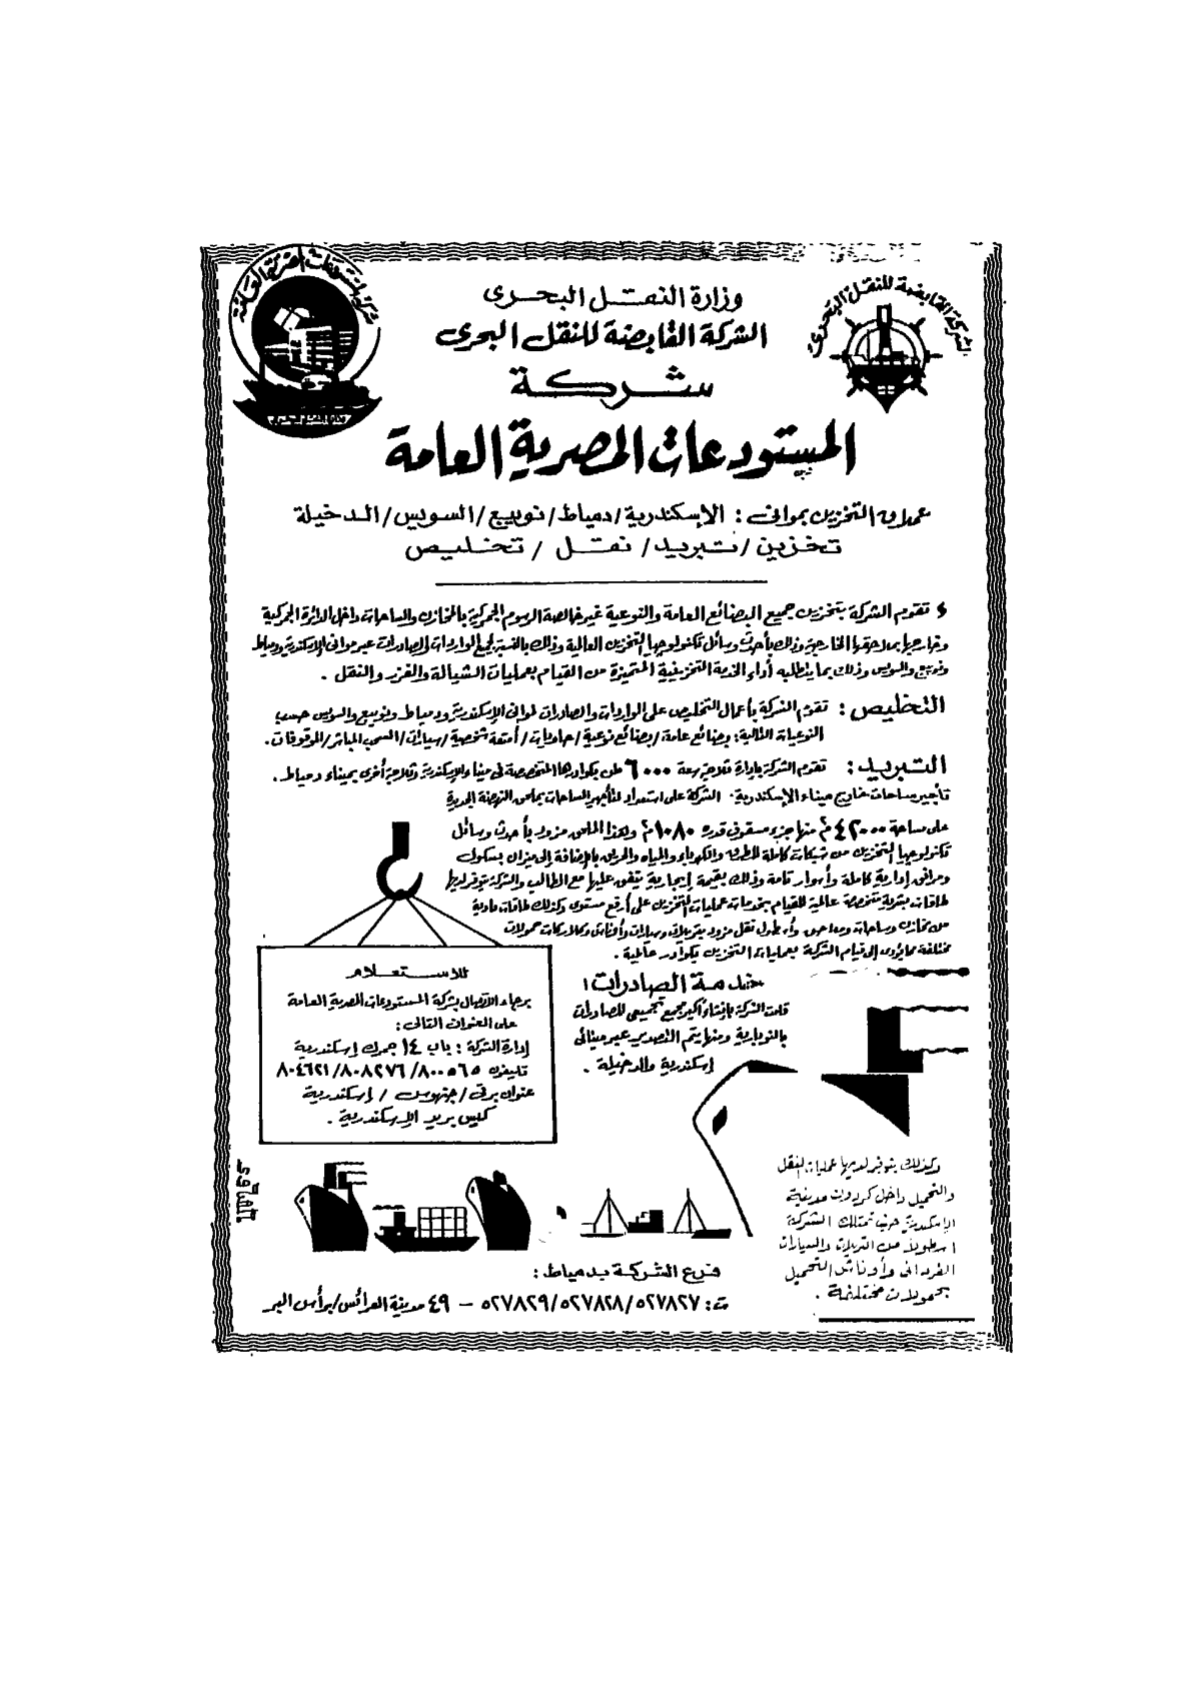 شركة المستودعات المصرية العامة
الشركة القابضة للنقل البحرى
وزارة النقل البحرى
الشركة القابضة للنقل البحرى
شركة
المستودعات المصرية العامة
عملاق التخزين بموانى : الإسكندرية/دمياط/نويبع/السويس/الدخيلة
تخزين/تبريد/نقل/تخليص
تقوم الشركة بتخزين جميع البضائع العامة والنوعية غير خالصة الرسوم الجمركية بالمخازن والساحات داخل الدائرة الجمركية
وخارجها بملاحقها الخارجية وذلك بأحدث وسائل تكنولوجيا التخزين العالمية وذلك بالنسبة لجميع الواردات والصادرات عبر موانى الإسكندرية ودمياط
ونويبع والسويس وذلك بما يتطلبه أداء الخدمة التخزينية المتميزة من القيام بعمليات الشيالة والفرز والنقل .
التخليص : تقوم الشركة بأعمال التخليص على الواردات والصادرات لموانى الإسكندرية ودمياط ونويبع والسويس حسب
النوعيات التالية : بضائع عامة/بضائع نوعية/حاويات/أمتعة شخصية/سيارات/السحب المباشر/الموقوفات .
التبريد : تقوم الشركة بإدارة ثلاجة سعة ٦٠٠٠ طن بكوادرها المتخصصة فى ميناء الإسكندرية وثلاجة أخرى بميناء دمياط .
تأجير ساحات خارج ميناء الإسكندرية . الشركة على استعداد لتأجير الساحات بملحق النهضة الجديدة
على مساحة ٤٢٠٠٠ م٢ منها جزء مسقوف قدره ١٠٨٠ م٢ وهذا الملحق مزود بأحدث وسائل
تكنولوجيا التخزين من شبكات كاملة للطرق والكهرباء والمياه والحريق بالإضافة إلى ميزان بسكول
ومرافق إدارية كاملة وأسوار تامة وذلك بقيمة إيجارية يتفق عليها مع الطالب والشركة يتوفر لديها
طاقات بشرية متخصصة عالمية للقيام بخدمات عمليات التخزين على أرقع مستوى وكذلك طاقات مادية
من مخازن وساحات وملاحق وأسطول نقل مزود بتريلات وسيارات وأوناش وكلاركات حمولات
مختلفة مما يؤدى إلى قيام الشركة بعمليات التخزين بكوادر عالمية .
خدمة الصادرات :
قامت الشركة بإنشاء أكبر مجمع تجميعى للصادرات
بالنوبارية ومنها يتم التصدير عبر مينائى
إسكندرية والدخيلة .
للاستعلام
برجاء الاتصال بشركة المستودعات المصرية العامة
على العنوان التالى :
إدارة الشركة : باب ١٤ جمرك إسكندرية
تليفون ٨٠٠٥٦٥/٨٠٨٢٧٦/٨٠٤٦٢١
عنوان برقى/جنهوس/إسكندرية
كليس بريد الإسكندرية .
وكذلك يتوفر لديها عمليات النقل
والتحميل داخل كردون مدينة
الإسكندرية حيث تمتلك الشركة
اسطولا من التريلات والسيارات
الفردانى وأوناش التحميل
بحمولات مختلفة .
فرع الشركة بدمياط :
ت : ٥٢٧٨٢٧/٥٢٧٨٢٨/٥٢٧٨٢٩ – ٤٩ مدينة العرائس/برأس البر